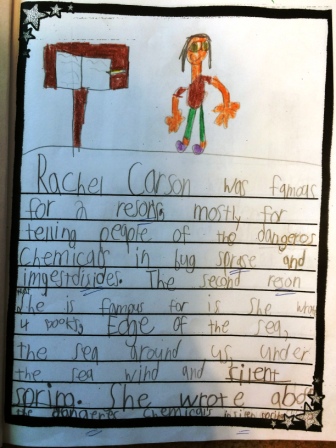 Rachel Carson was famous
for 2 resons, mostly for
telling people of the dangeros
chemicals in bug sprase and
imgestdisides. The second reson
she is famous for is she wrote
4 books, Edge of the sea,
the sea around us, under
the sea wind and silent
sprim. She wrote abot
the dangerers chemicals in silent